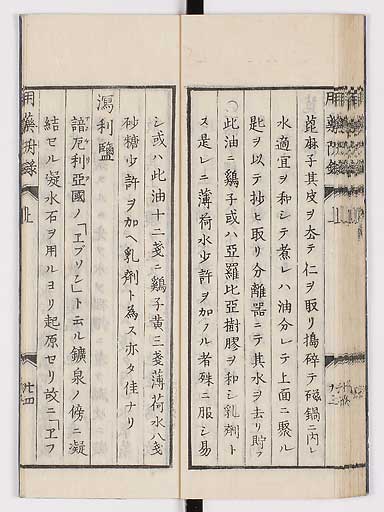 蓖麻子其皮ヲ去テ仁ヲ取リ搗碎テ磁鍋ニ内レ
水適宜ヲ和シテ煮レハ油分レテ上面ニ聚ル
匙ヲ以テ抄ヒ取リ分離器ニテ其水ヲ去リ貯フ
〇此油ニ鷄子或ハ亞羅比亞樹膠ヲ和シ乳劑ト
ス是レニ薄荷水少許ヲ加フル者殊ニ服シ易
シ或ハ此油十二戔ニ鷄子黄三戔薄荷水八戔
砂糖少許ヲ加ヘ乳劑ト為ス亦タ佳ナリ
瀉利鹽
諳厄利亞國ノ「エプソン」ト云ル鑛泉ノ傍ニ凝
結セル凝水石ヲ用ルヨリ起原セリ故ニ「エフ
用藥 録 上
廿四